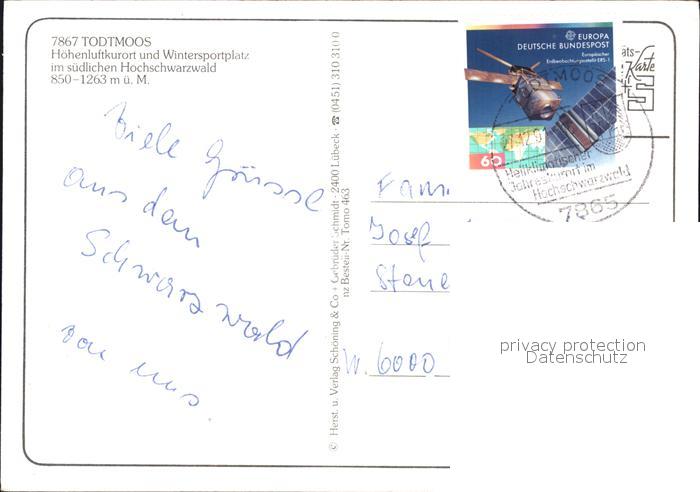 7867 TODTMOOS
Höhenluftkurort und Wintersportplatz
im südlichen Hochschwarzwald
850–1263 m ü. M.
Viele Grüsse
aus dem
Schwarzwald
von uns.
© Herst. u. Verlag Schöning & Co + Gebrüder Schmidt · 2400 Lübeck · ☎ (0451) 310 310 0
nz Bestell-Nr. Tomo 463
EUROPA
DEUTSCHE BUNDESPOST
Europäischer
Erdbeobachtungssatellit ERS-1
60
TODTMOOS
12.91
Heilklimatischer
Jahreskurort im
Hochschwarzwald
7865
äts-
Karte
Fam
Josef
Stene
W. 6000
privacy protection
Datenschutz